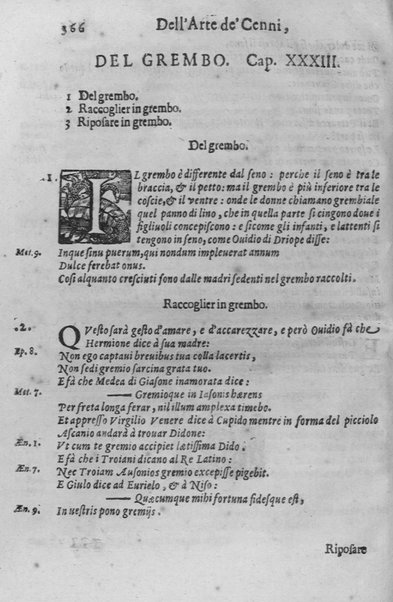 366 Dell'Arte de' Cenni,
DEL GREMBO. Cap. XXXIII.
1 Del grembo.
2 Raccoglier in grembo.
3 Riposare in grembo.
Del grembo.
.1. IL grembo è differente dal seno: perche il seno è tra le
braccia, & il petto: ma il grembo è più inferiore tra le
coscie, & il ventre: onde le donne chiamano grembiale
quel panno di lino, che in quella parte si cingono doue i
figliuoli concepiscono: e sicome gli infanti, e lattenti si
tengono in seno, come Ouidio di Driope disse:
Met. 9. Inque sinu puerum, qui nondum impleuerat annum
Dulce ferebat onus.
Così alquanto cresciuti sono dalle madri sedenti nel grembo raccolti.
Raccoglier in grembo.
.2. QVesto sarà gesto d'amare, e d'accarezzare, e però Ouidio fà che
Hermione dice à sua madre:
Ep. 8. Non ego captaui breuibus tua colla lacertis,
Non sedi gremio sarcina grata tuo.
E fà che Medea di Giasone inamorata dice:
Met. 7. —— Gremioque in Iasonis hærens
Per freta longa ferar, nil illum amplexa timebo.
Et appresso Virgilio Venere dice à Cupido mentre in forma del picciolo
Ascanio andarà à trouar Didone:
Æn. 1. Vt cum te gremio accipiet lætissima Dido.
E fà che i Troiani dicano al Re Latino:
Æn. 7. Nec Troiam Ausonios gremio excepisse pigebit.
E Giulo dice ad Eurielo, & à Niso:
—— Quæcumque mihi fortuna fidesque est,
Æn. 9. In uestris pono gremijs.
Riposare